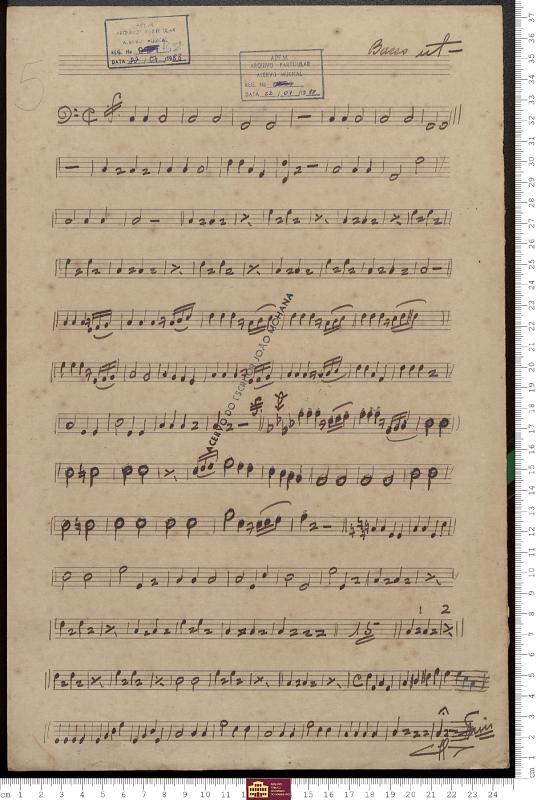 Basso ut
APEM
ARQUIVO PARTICULAR
ACERVO MUSICAL
REG. No
DATA 22 / 07 / 1988
APEM
ARQUIVO PARTICULAR
ACERVO MUSICAL
REG. No
DATA 22 / 07 / 1988
ACERVO DO ESCRITOR JOÃO MOHANA
15
1 2
Fim
cm 1 2 3 4 5 6 7 8 9 15 16 17 18 19 20 21 22 23 24